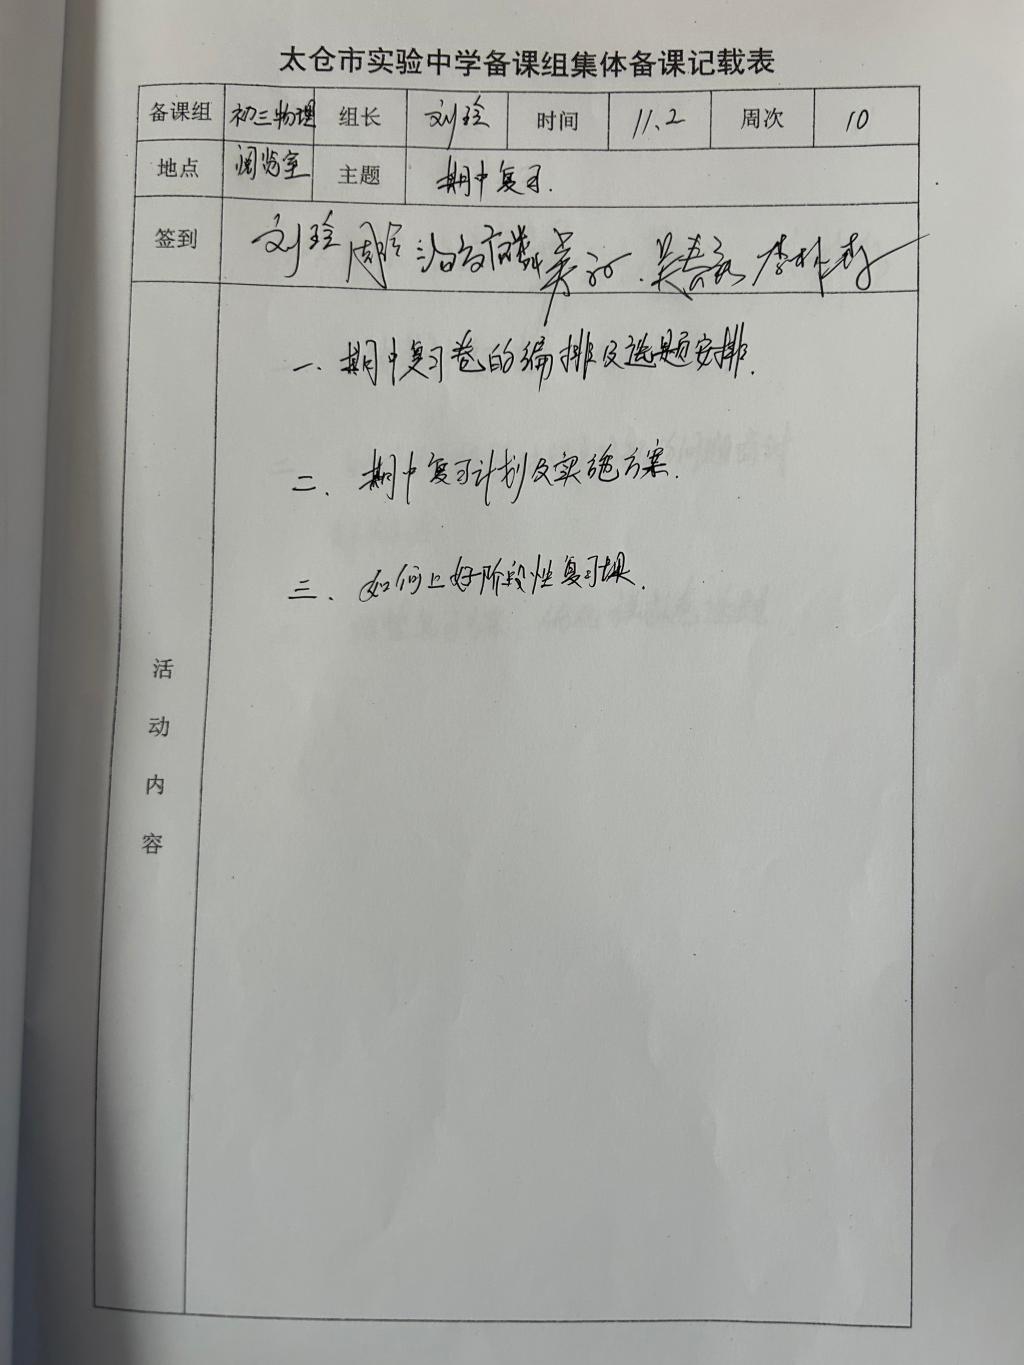 太仓市实验中学备课组集体备课记载表
备课组 初三物理 组长 刘玲 时间 11.2 周次 10
地点 阅览室 主题 期中复习.
签到 刘玲
一、期中复习卷的编排及选题安排.
二、期中复习计划及实施方案.
三、如何上好阶段性复习课.
活
动
内
容